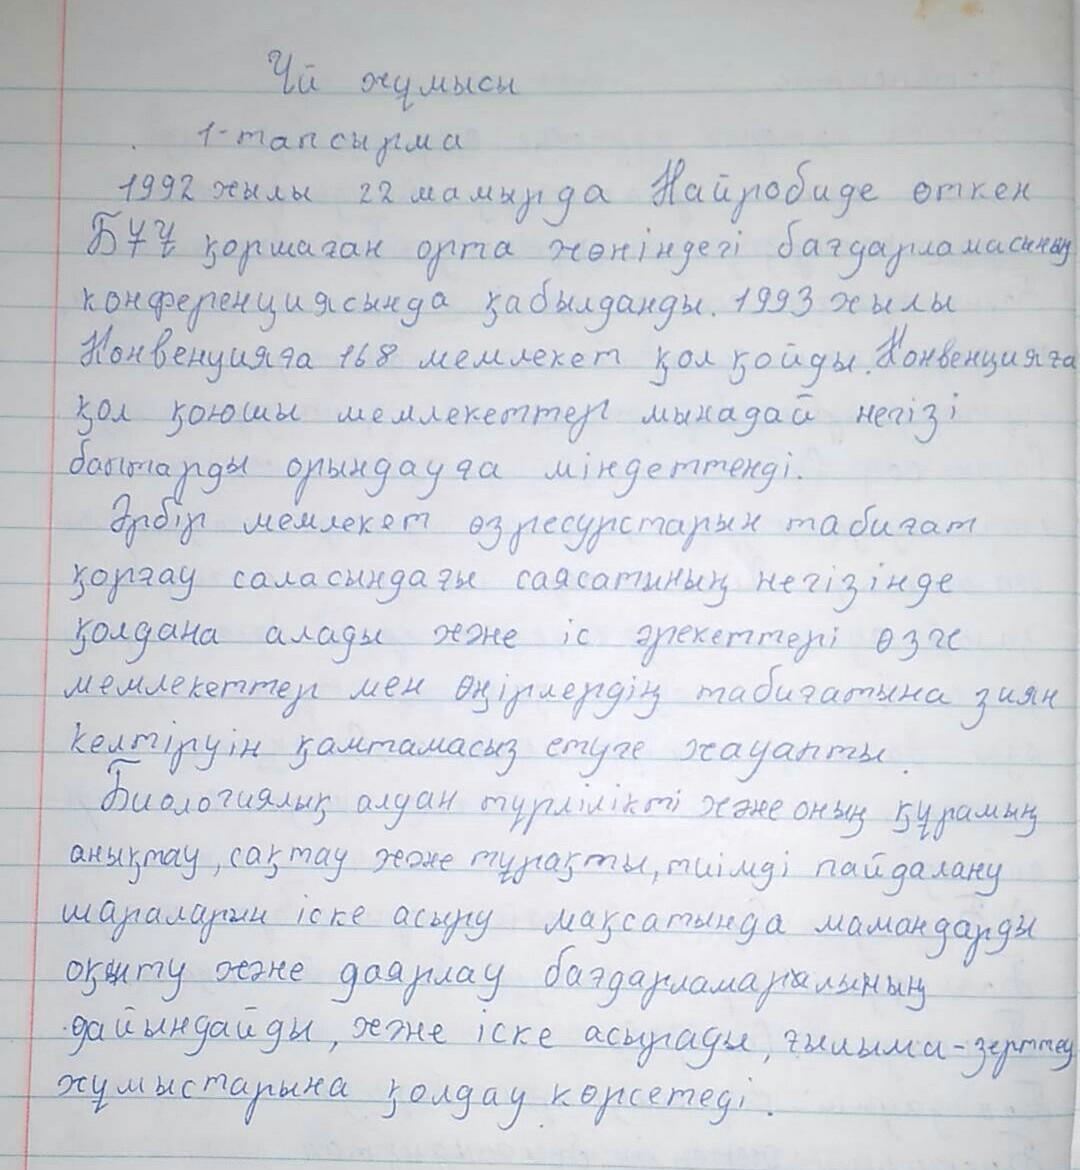 Үй жұмысы
1-тапсырма
1992 жылы 22 мамырда Найробиде өткен
БҰҰ қоршаған орта жөніндегі бағдарламасының
конференциясында қабылданды. 1993 жылы
Конвенцияға 168 мемлекет қол қойды. Конвенцияға
қол қоюшы мемлекеттер мынадай негізі
бағытарды орындауға міндеттенді.
Әрбір мемлекет өз ресурстарын табиғат
қорғау саласындағы саясатының негізінде
қолдана алады және іс әрекеттері өзге
мемлекеттер мен өңірлердің табиғатына зиян
келтіруін қамтамасыз етуге жауапты.
Биологиялық алдан түрлілікті және оның құрамың
анықтау, сақтау және тұрақты, тиімді пайдалану
шараларын іске асыру мақсатында мамандарды
оқыту және даярлау
дайындайды, және іске асырады, ғылыма-зерттеу
жұмыстарына қолдау көрсетеді.